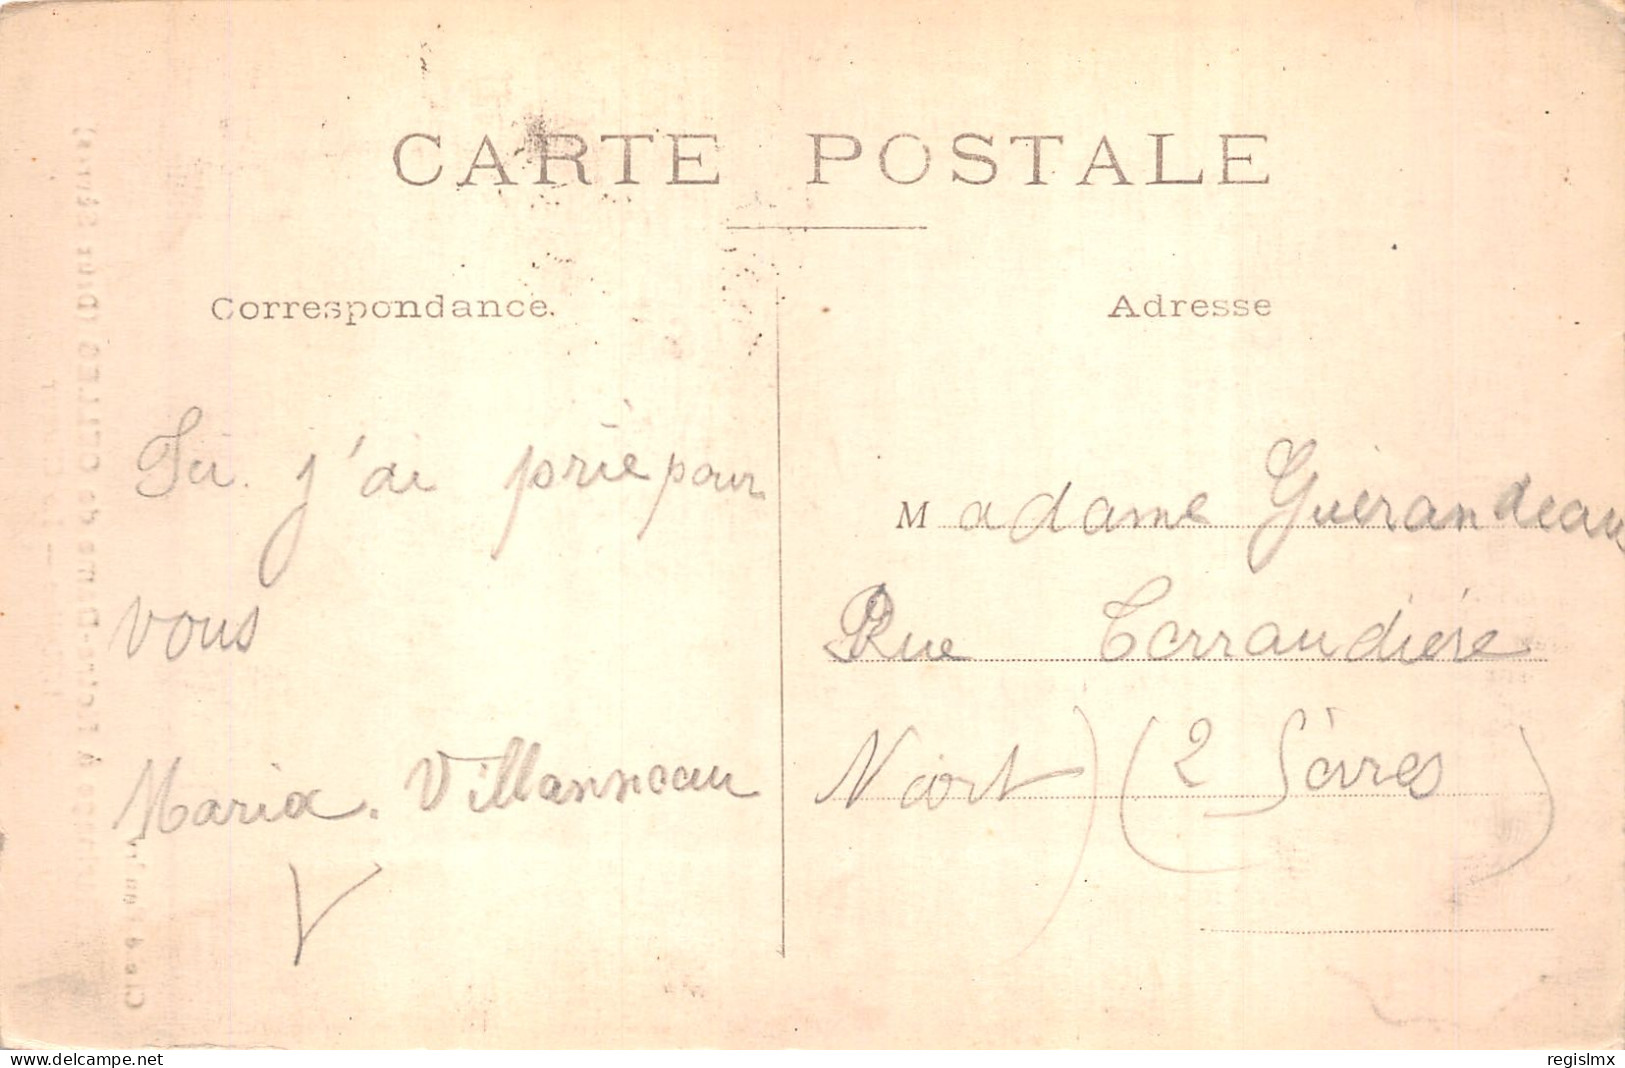 CARTE POSTALE
Correspondance.
Adresse
Ici j'ai prié pour
vous
Maria. Villanneau
Madame Guérandeau
Rue Terraudière
Niort) (2 Sèvres)
delcampe.net
regislmx